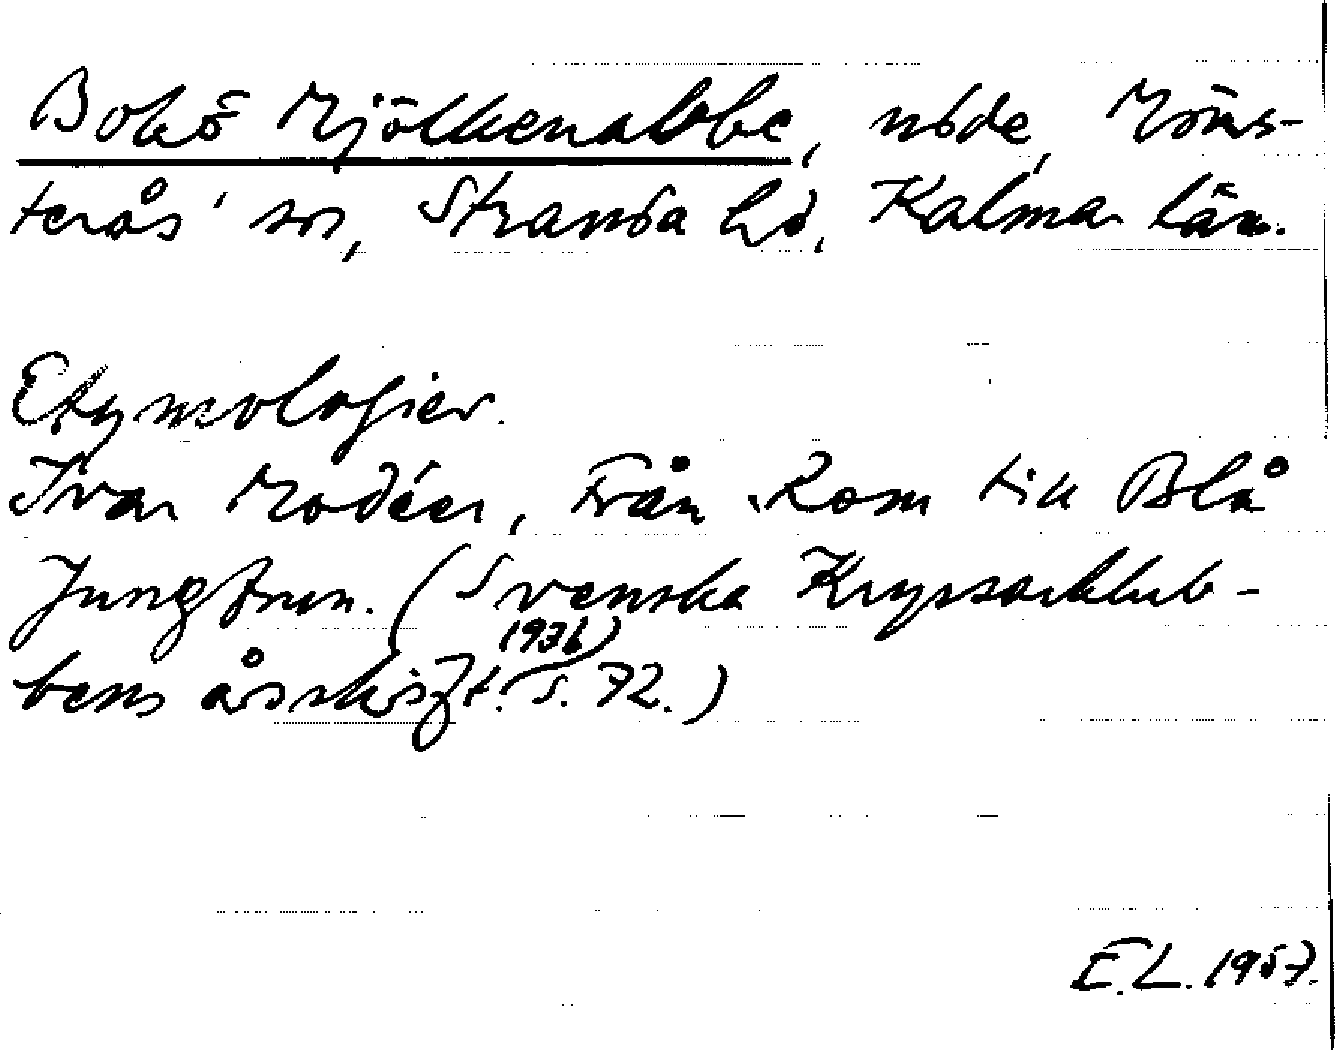 Bokö Mjölkenabbe, udde, Möns-
terås' sn, Stranda hd, Kalmar län.
Etymologier.
Ivar Modéer, Från Rom till Blå
Jungfrun. (Svenska Kryssarklub-
bens årsskrift. (1936) S. 72.)
E.L. 1957.